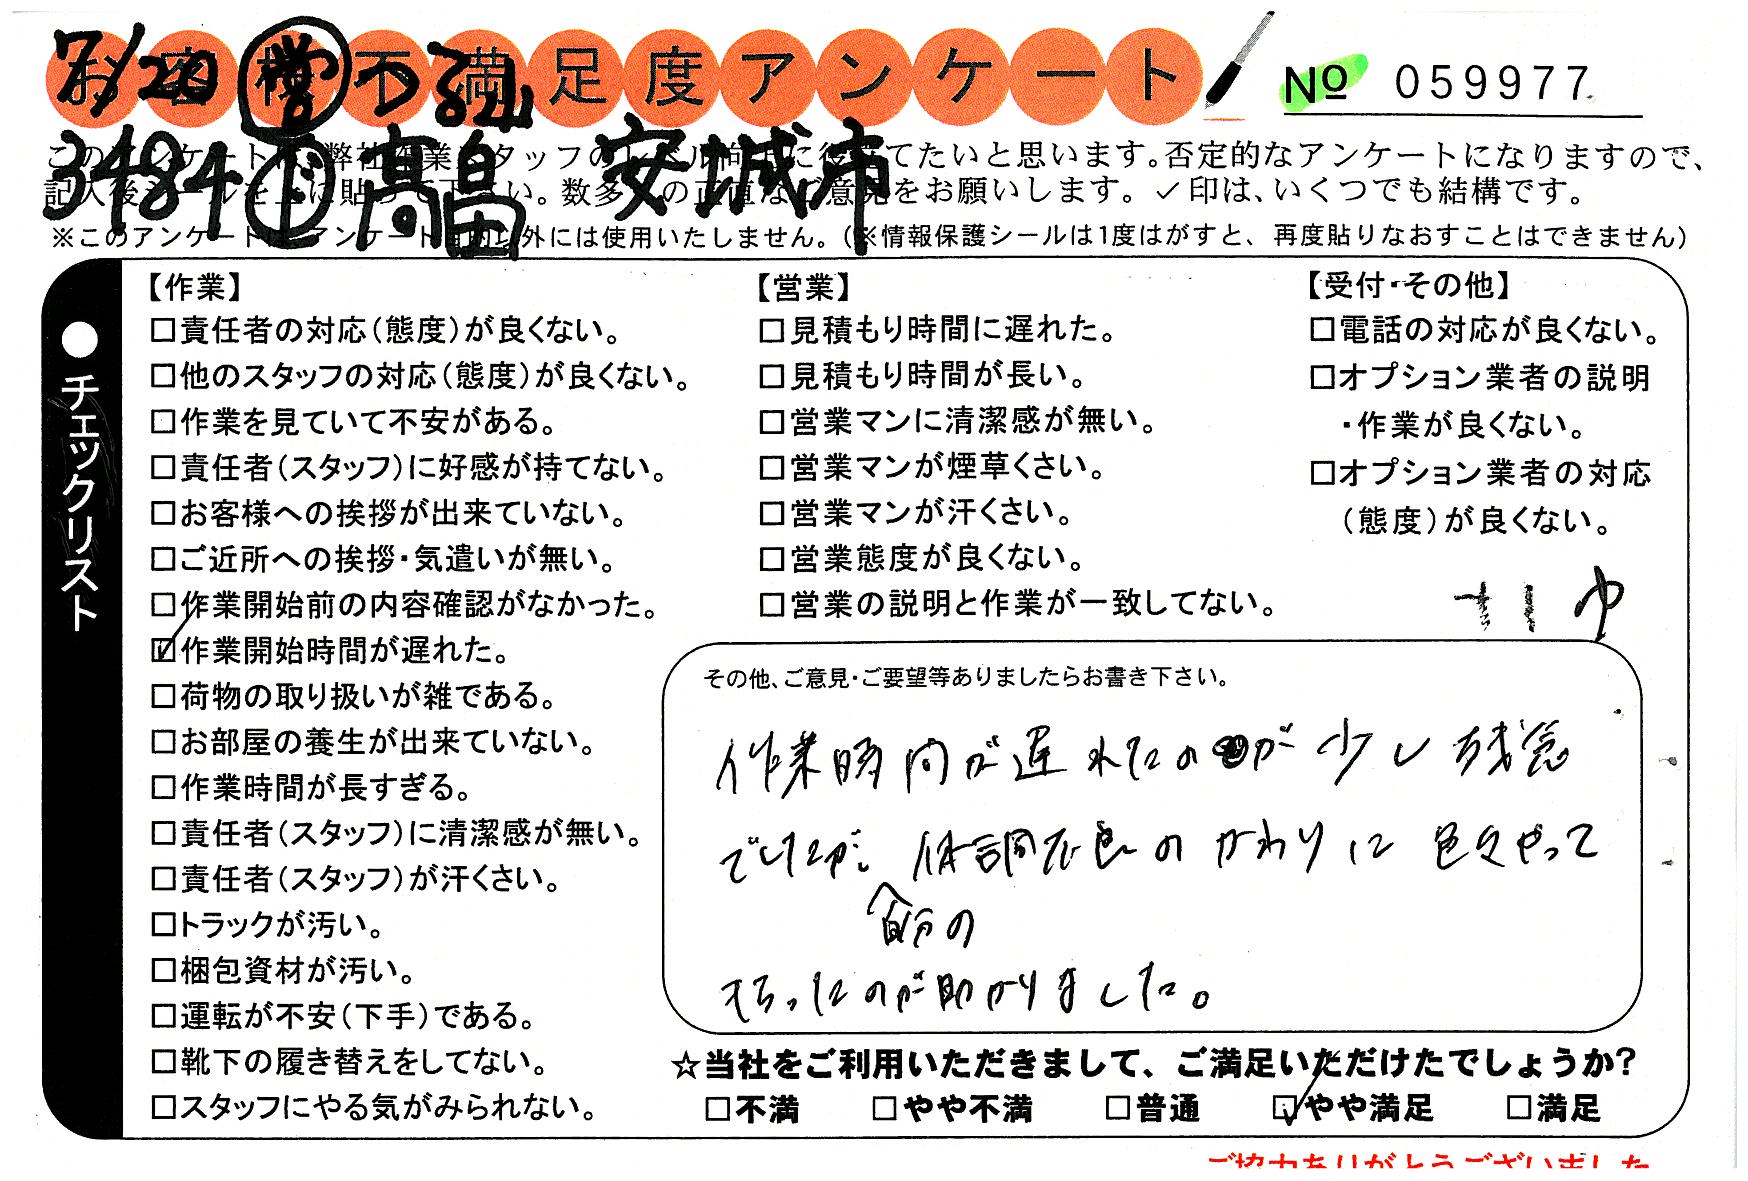 お客様不満足度アンケート
№ 059977
7/20 営 つるみ
3484 ビ 高畠 安城市
このアンケートは、弊社作業スタッフのレベル向上に役立てたいと思います。否定的なアンケートになりますので、
記入後シールを上に貼って下さい。数多くの正直なご意見をお願いします。✓印は、いくつでも結構です。
※このアンケートは、アンケート目的以外には使用いたしません。（※情報保護シールは1度はがすと、再度貼りなおすことはできません）
●チェックリスト
【作業】
□責任者の対応（態度）が良くない。
□他のスタッフの対応（態度）が良くない。
□作業を見ていて不安がある。
□責任者（スタッフ）に好感が持てない。
□お客様への挨拶が出来ていない。
□ご近所への挨拶・気遣いが無い。
□作業開始前の内容確認がなかった。
☑作業開始時間が遅れた。
□荷物の取り扱いが雑である。
□お部屋の養生が出来ていない。
□作業時間が長すぎる。
□責任者（スタッフ）に清潔感が無い。
□責任者（スタッフ）が汗くさい。
□トラックが汚い。
□梱包資材が汚い。
□運転が不安（下手）である。
□靴下の履き替えをしてない。
□スタッフにやる気がみられない。
【営業】
□見積もり時間に遅れた。
□見積もり時間が長い。
□営業マンに清潔感が無い。
□営業マンが煙草くさい。
□営業マンが汗くさい。
□営業態度が良くない。
□営業の説明と作業が一致してない。
【受付・その他】
□電話の対応が良くない。
□オプション業者の説明
・作業が良くない。
□オプション業者の対応
（態度）が良くない。
その他、ご意見・ご要望等ありましたらお書き下さい。
作業時間が遅れたのが少し残念
でしたが、体調不良のかわりに色々やって
自分の
もらったのが助かりました。
☆当社をご利用いただきまして、ご満足いただけたでしょうか？
□不満 □やや不満 □普通 ☑やや満足 □満足
ご協力ありがとうございました